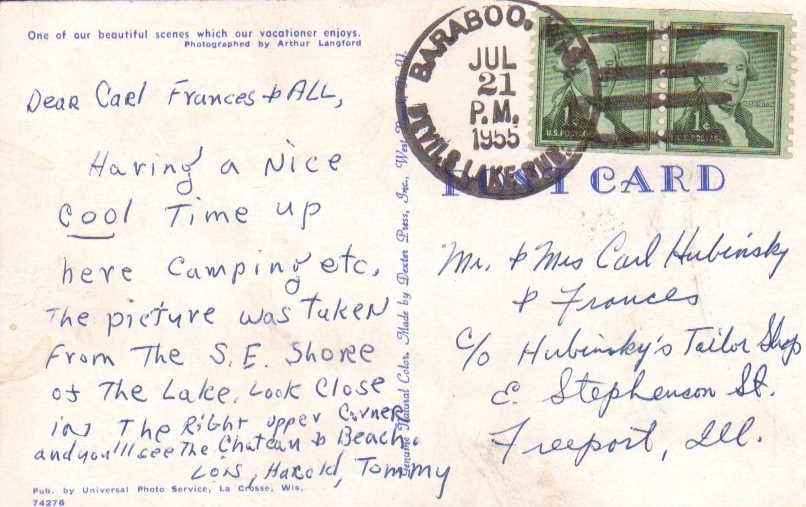 One of our beautiful scenes which our vacationer enjoys.
Photographed by Arthur Langford
Dear Carl Frances & ALL,
Having a Nice
Cool Time up
here Camping etc.
The picture was taken
From The S.E. Shore
of The Lake. Look Close
in The Right upper Corner
and you'll see The Chateau & Beach.
Lois, Harold, Tommy
Pub. by Universal Photo Service, La Crosse, Wis.
74276
Genuine Natural Color. Made by Dexter Press, Inc., West
BARABOO, WIS.
JUL
21
P.M.
1955
DEVILS LAKE
1¢
U.S. POSTAGE
1¢
U.S. POSTAGE
POST CARD
Mr. & Mrs Carl Hubinsky
& Frances
c/o Hubinsky's Tailor Shop
E. Stephenson St.
Freeport, Ill.